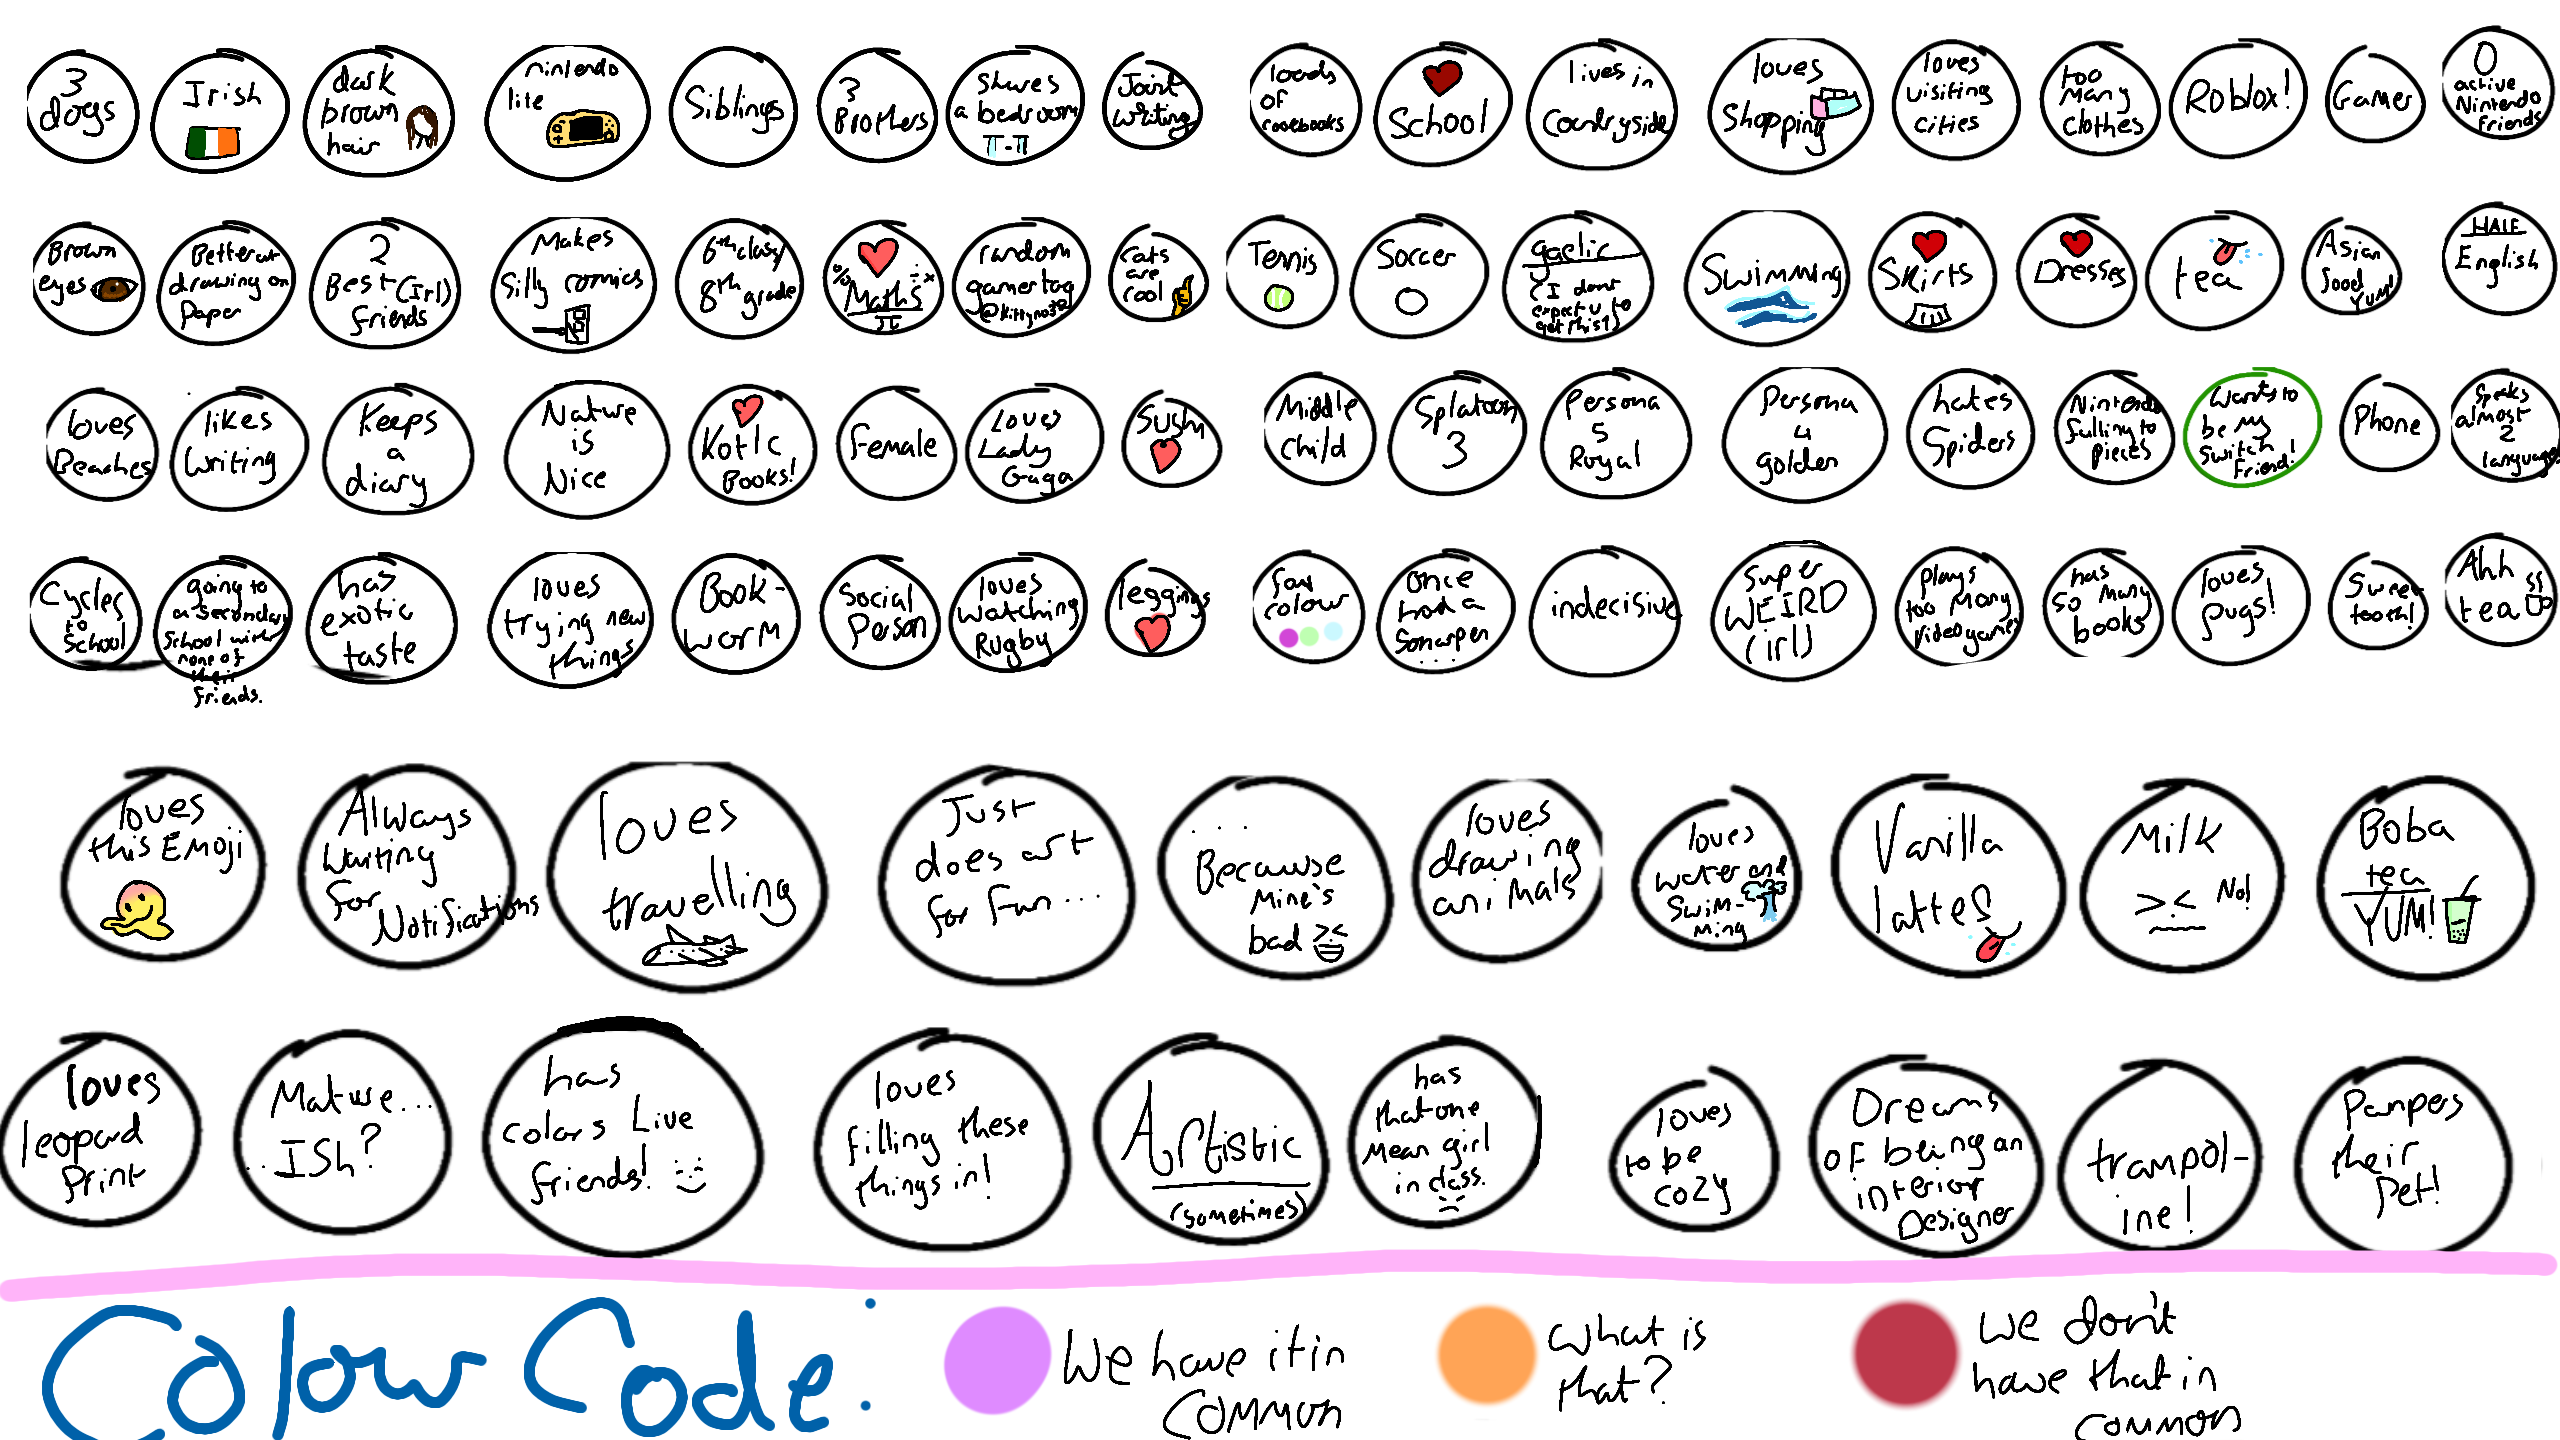 3
dogs
Irish
dark
brown
hair
nintendo
lite
Siblings
3
Brothers
Shares
a bedroom
π-π
Joint
writing
loads
of
cookbooks
School
lives in
Countryside
loves
Shopping
loves
visiting
cities
too
many
clothes
Roblox!
Gamer
0
active
Nintendo
friends
Brown
eyes
Better at
drawing on
Paper
2
Best (Irl)
friends
Makes
Silly comics
6th class/
8th grade
% ÷ x
Maths
π
random
gamertag
cats
are
cool
Tennis
Soccer
gaelic
(I dont
expect u to
get this!)
Swimming
Skirts
Dresses
tea
Asian
food
YUM!
HALF
English
loves
Beaches
likes
writing
Keeps
a
diary
Nature
is
Nice
Kotlc
Books!
Female
Loves
Lady
Gaga
Sushi
Middle
child
Splatoon
3
Persona
5
Royal
Persona
4
golden
hates
Spiders
Nintendo
falling to
pieces
Wants to
be my
Switch
friend!
Phone
Speaks
almost
2
languages
Cycles
to
School
going to
a secondary
School with
none of
their
friends.
has
exotic
taste
loves
trying new
things
Book-
worm
Social
Person
loves
watching
Rugby
leggings
fav
colour
once
had a
Sonarpen
....
indecisive
super
WEIRD
(irl)
plays
too many
videogames
has
so many
books
loves
pugs!
Sweet
tooth!
Ahh
tea
loves
this Emoji
Always
Waiting
for
Notifications
loves
travelling
Just
does art
for fun...
...
Because
Mine's
bad
loves
drawing
animals
loves
water and
Swim-
ming
Vanilla
lattes
Milk
>.< No!
Boba
tea
YUM!
loves
leopard
print
Mature...
..ISh?
has
colors Live
friends!
loves
filling these
things in!
Artistic
(sometimes)
has
that one
Mean girl
in class.
loves
to be
cozy
Dreams
of being an
interior
Designer
trampol-
ine!
Pampers
their
pet!
Colour Code:
We have it in
common
What is
that?
We don't
have that in
common